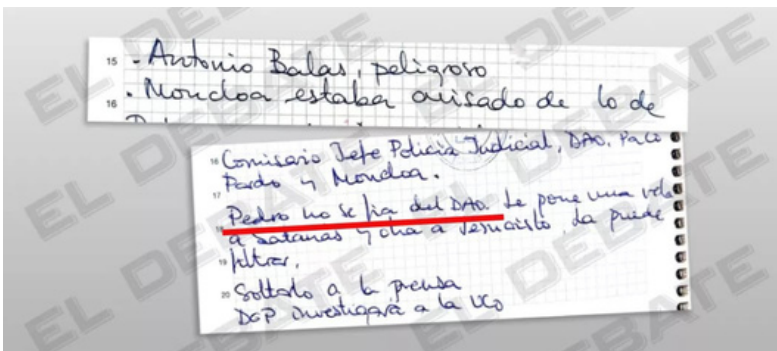 15 - Antonio Balas, peligroso
16 . Moncloa estaba avisado de lo de
16 Comisario Jefe Policía Judicial, DAO, Paco
17 Pardo y Moncloa.
18 Pedro no se fía del DAO. Le pone una vela
a Satanas y otra a Jesucristo. La puede
19 filtrar.
20 Soltarlo a la prensa
DGP investigará a la UCO
EL DEBATE